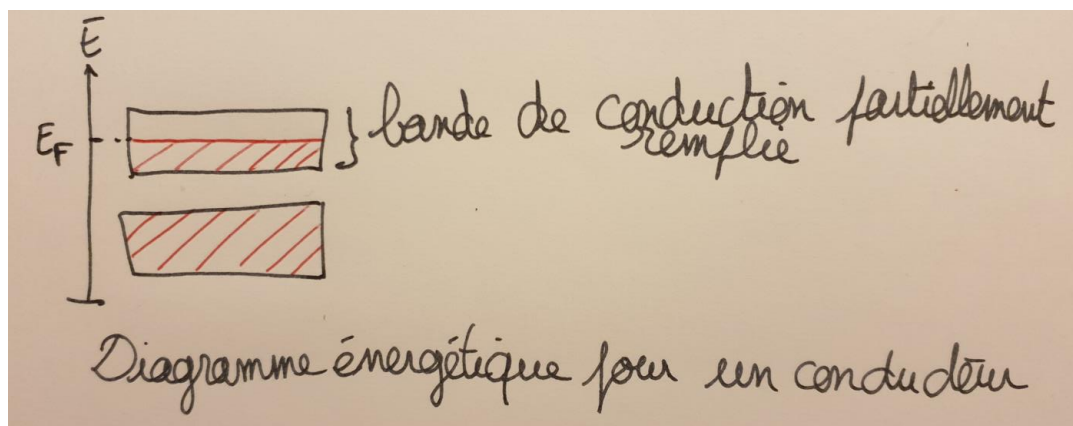 E
E_F
bande de conduction partiellement
remplie
Diagramme énergétique pour un conducteur